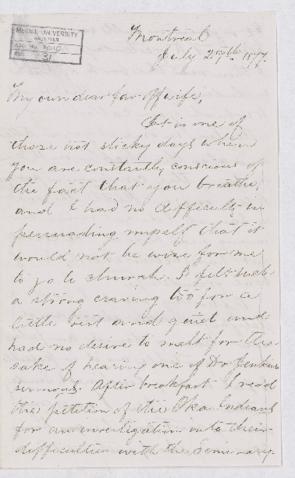 McGILL UNIVERSITY
ARCHIVES
ACC. NO.
REF. 31
Montreal
July 29th 1877.
My own dear far off wife,
It is one of
those hot sticky days when
you are constantly conscious of
the fact that you breathe,
and I had no difficulty in
persuading myself that it
would not be wise for me
to go to church. I felt such
a strong craving too for a
little rest and quiet and
had no desire to melt for the
sake of hearing one of Dr Jenkins
sermons. After breakfast I read
the petition of the Oka Indians
for an investigation into their
difficulties with the Seminary